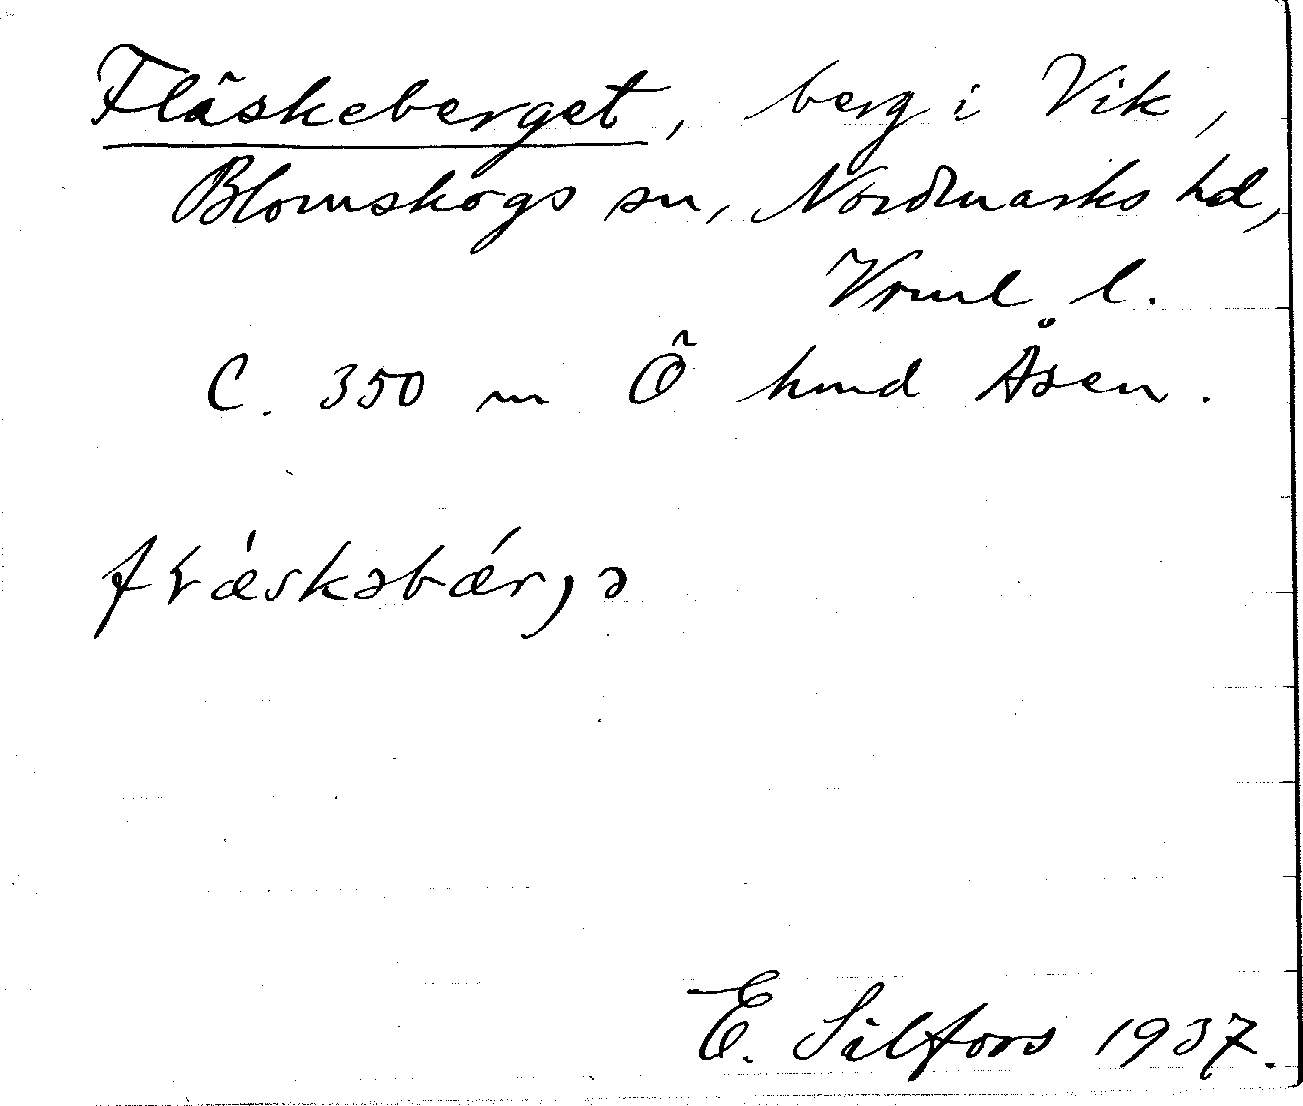 Fläskeberget, berg i Vik,
Blomskogs sn, Nordmarks hd,
Vrml l.
C. 350 m Ö hmd Åsen.
fɽǽskəbǽrjə
E. Sälfors 1937.